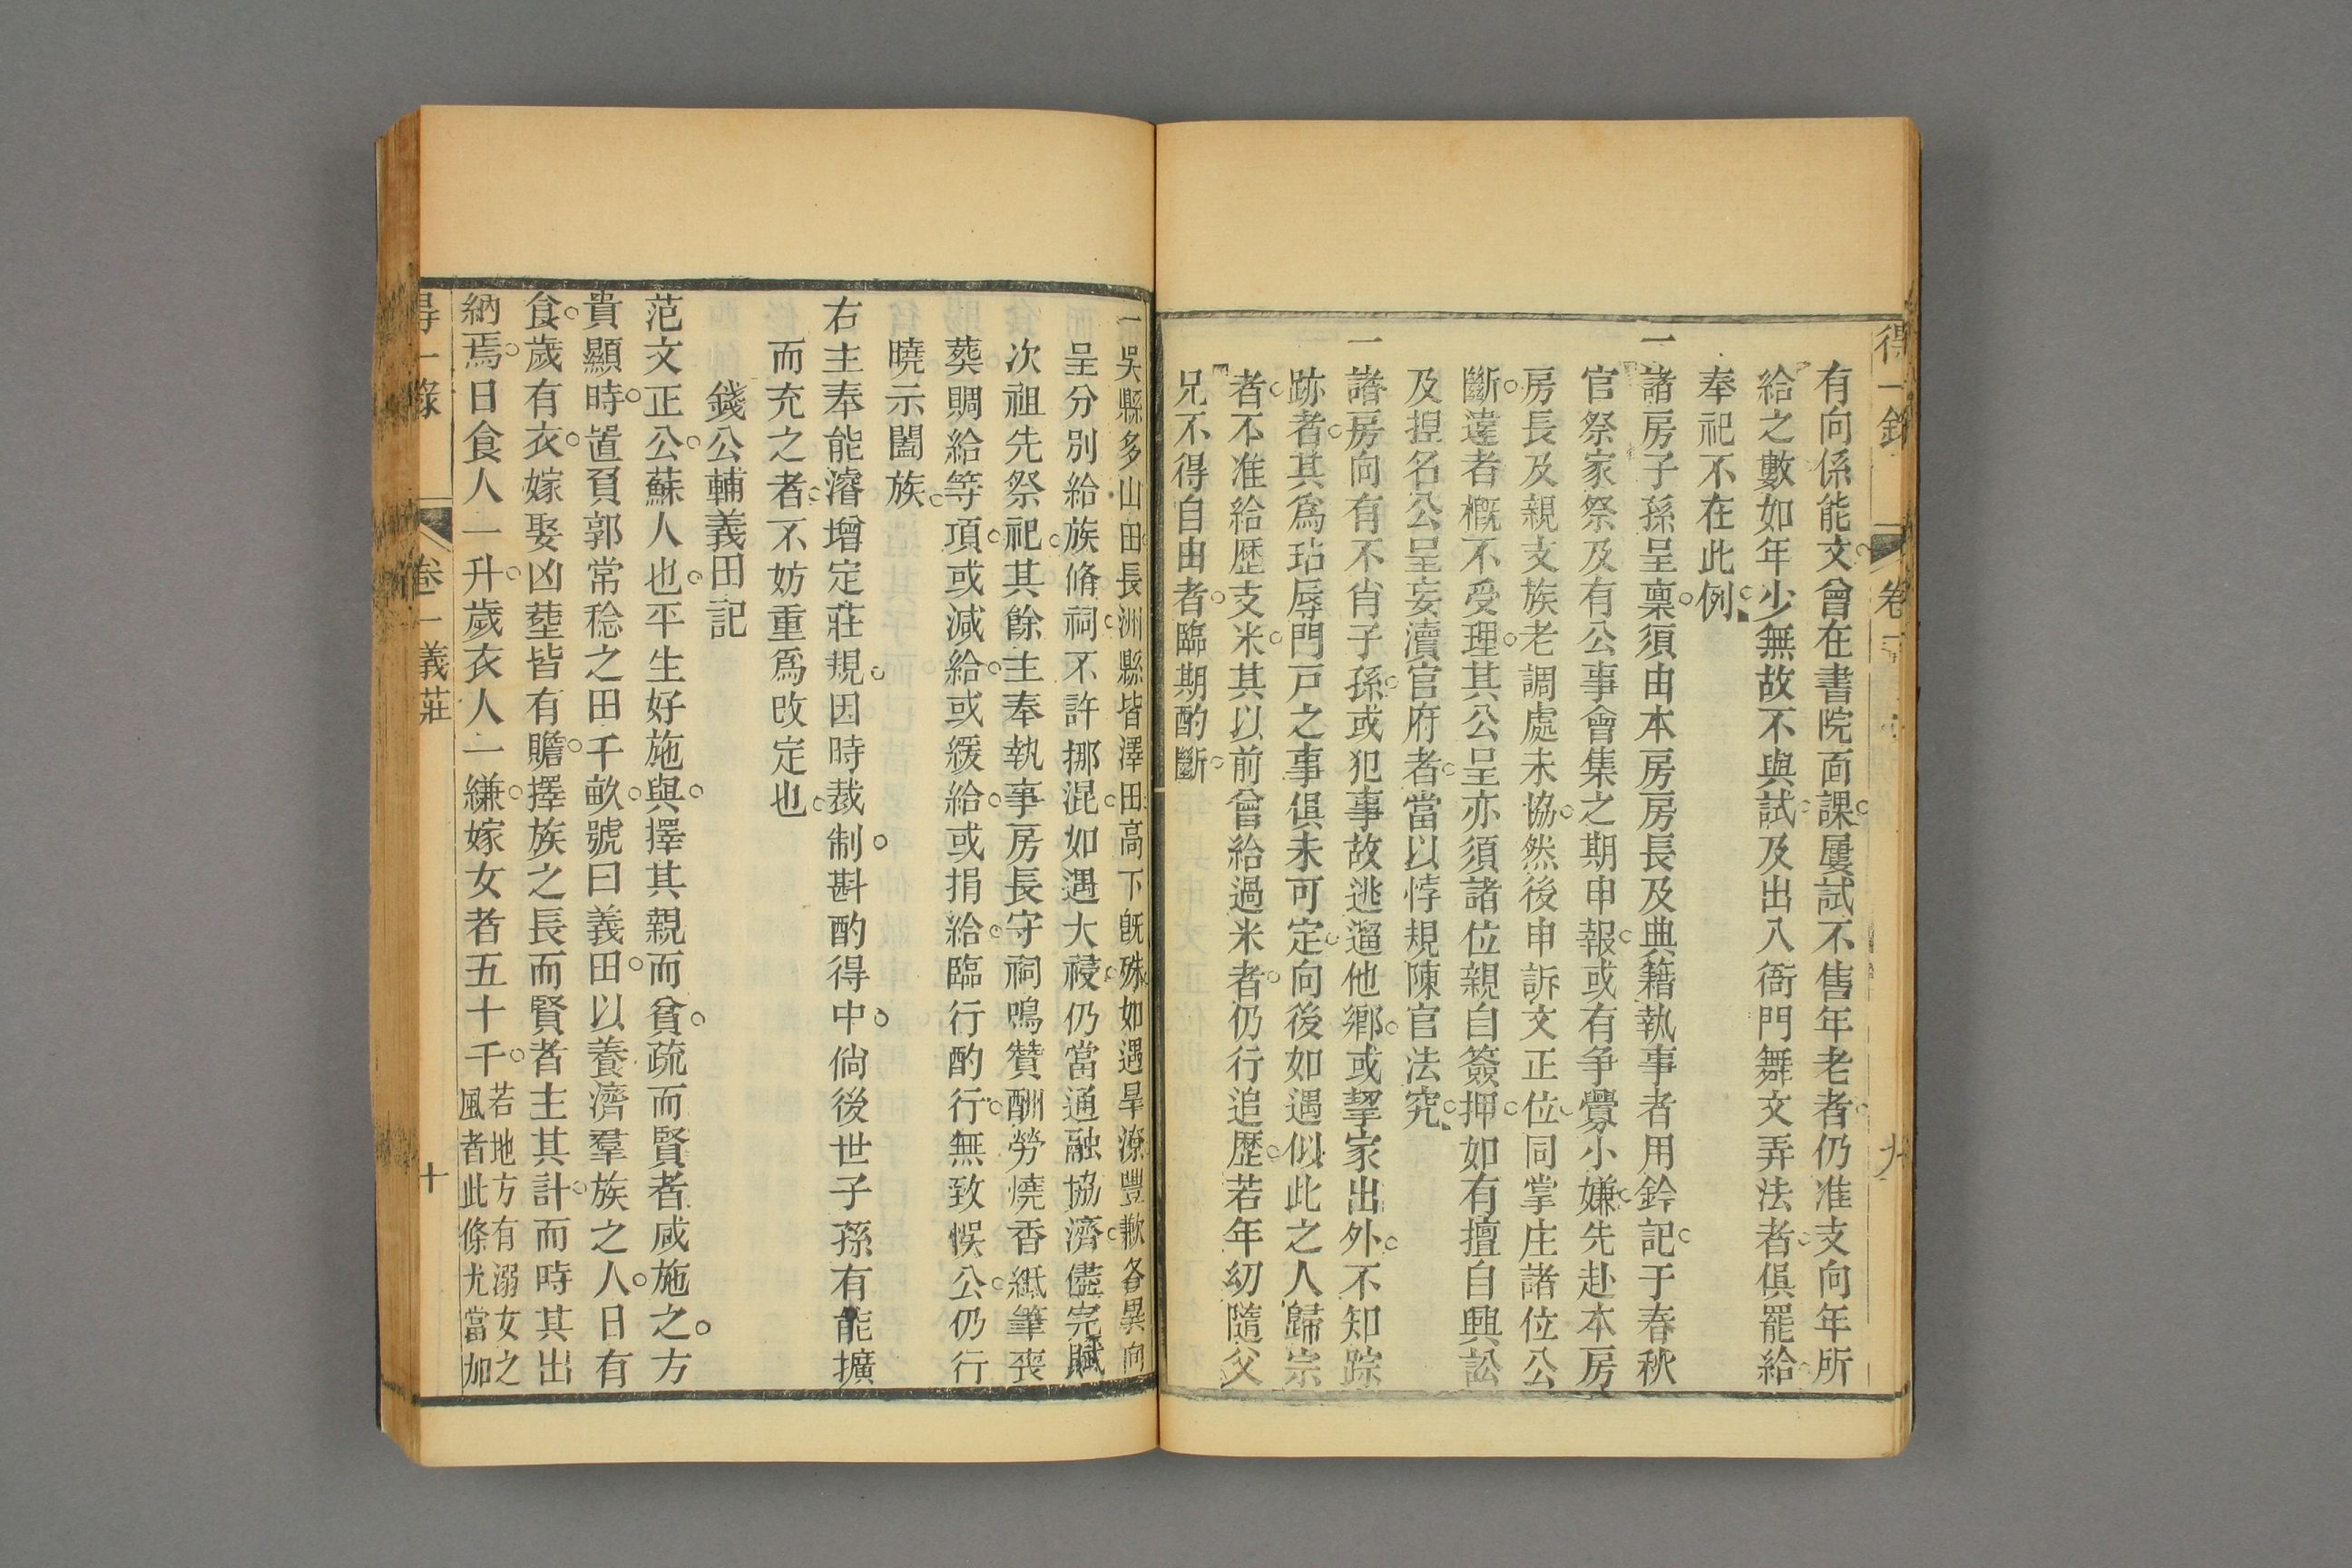 得一錄 卷一 九
有向係能文曾在書院面課屢試不售年老者仍准支向年所
給之數如年少無故不與試及出入衙門舞文弄法者俱罷給
奉祀不在此例
一諸房子孫呈稟須由本房房長及典籍執事者用鈐記于春秋
官祭家祭及有公事會集之期申報或有爭釁小嫌先赴本房
房長及親支族老調處未協然後申訴文正位同掌庄諸位公
斷違者槪不受理其公呈亦須諸位親自簽押如有擅自興訟
及捏名公呈妄瀆官府者當以悖規陳官法究
一諸房向有不肖子孫或犯事故逃遛他鄉或挈家出外不知踪
跡者其爲玷辱門戸之事俱未可定向後如遇似此之人歸宗
者不准給歷支米其以前曾給過米者仍行追歷若年幼隨父
兄不得自由者臨期酌斷
一吳縣多山田長洲縣皆澤田高下旣殊如遇旱潦豐歉各異向
呈分別給族脩祠不許挪混如遇大祲仍當通融協濟儘完賦
次祖先祭祀其餘主奉執事房長守祠鳴贊酬勞燒香紙筆喪
葬賙給等項或減給或緩給或捐給臨行酌行無致悞公仍行
曉示闔族
右主奉能濬增定莊規因時裁制斟酌得中倘後世子孫有能擴
而充之者不妨重爲改定也
錢公輔義田記
范文正公蘇人也平生好施與擇其親而貧疏而賢者咸施之方
貴顯時置負郭常稔之田千畝號曰義田以養濟羣族之人日有
食歲有衣嫁娶凶塟皆有贍擇族之長而賢者主其計而時其出
納焉日食人一升歲衣人一縑嫁女者五十千若地方有溺女之
風者此條尤當加
得一錄 卷一義莊 十